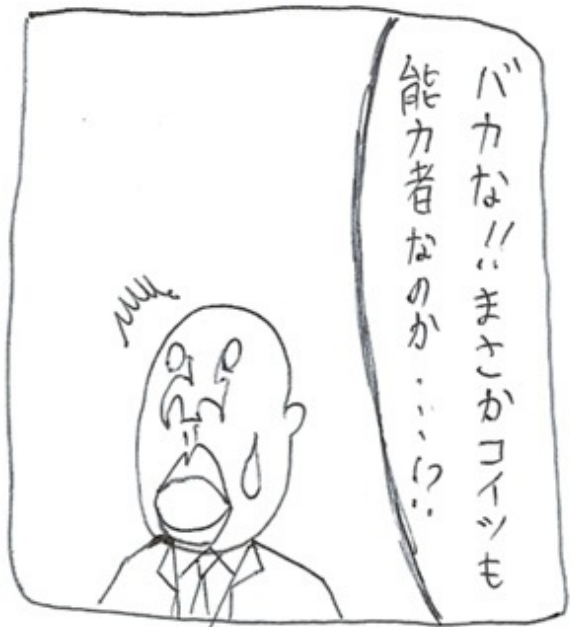 バカな!!まさかコイツも
能力者なのか・・・・!?